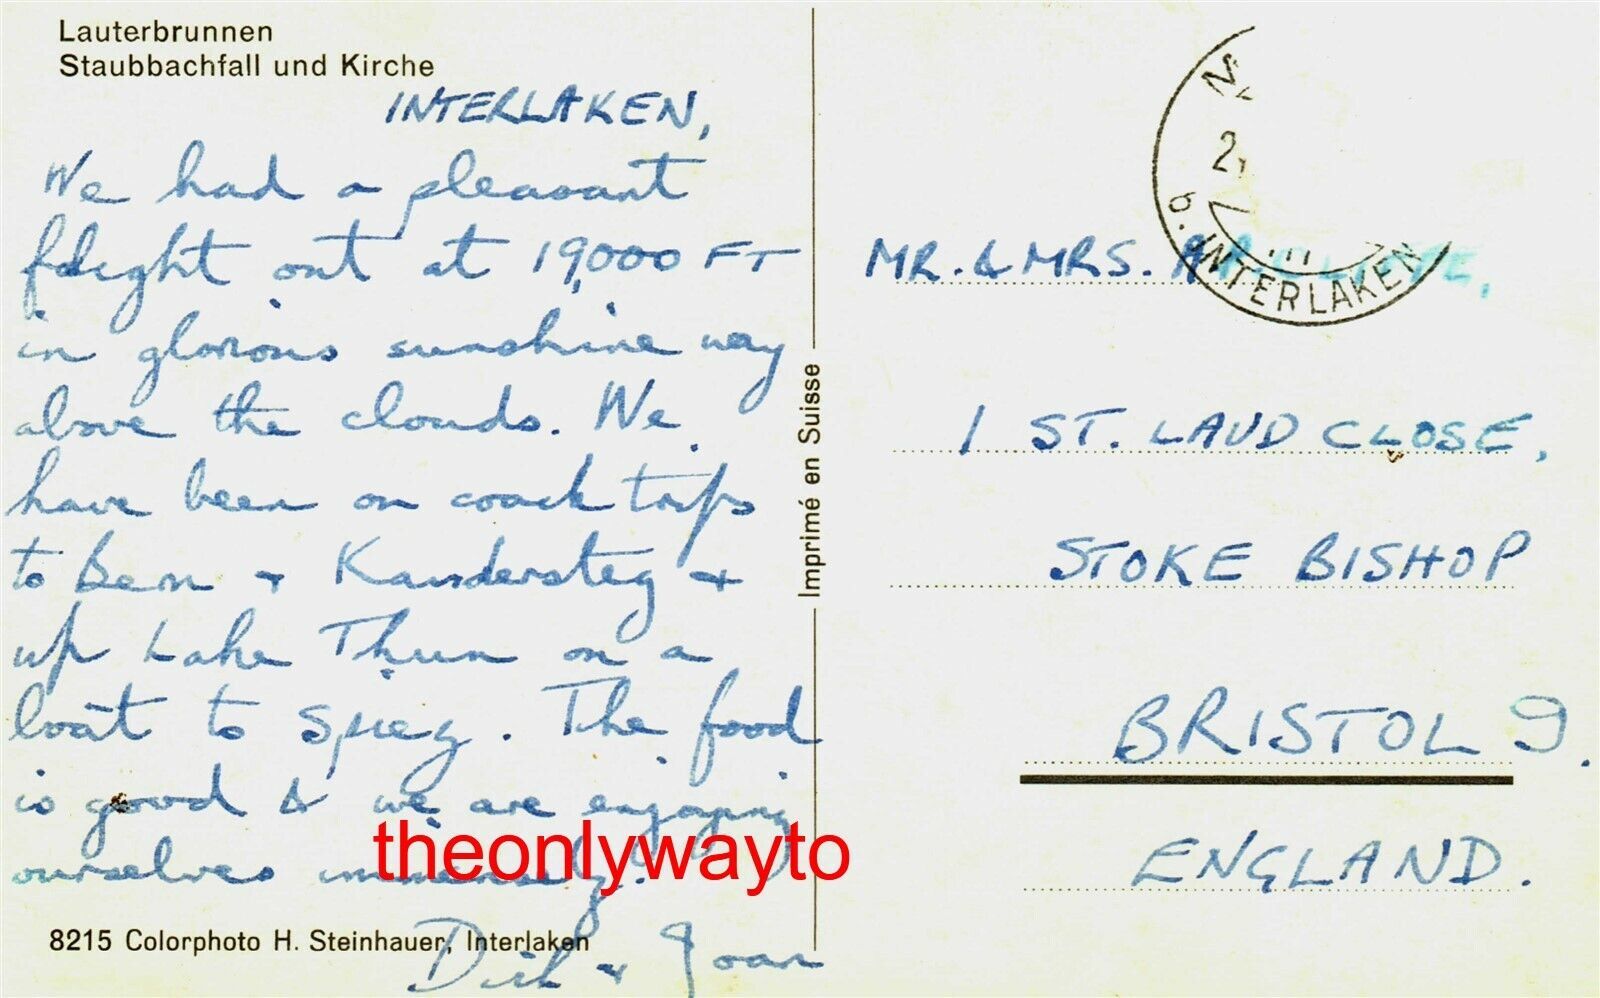 Lauterbrunnen
Staubbachfall und Kirche
INTERLAKEN,
We had a pleasant
flight out at 19,000 FT
in glorious sunshine way
above the clouds. We
have been on coach trips
to Bern & Kandersteg &
up Lake Thun on a
boat to Spiez. The food
is good & we are enjoying
ourselves immensely.
Dick & Joan
8215 Colorphoto H. Steinhauer, Interlaken
Imprimé en Suisse
b. INTERLAKEN
MR. & MRS.
1 ST. LAUD CLOSE,
STOKE BISHOP
BRISTOL 9.
ENGLAND.
theonlywayto